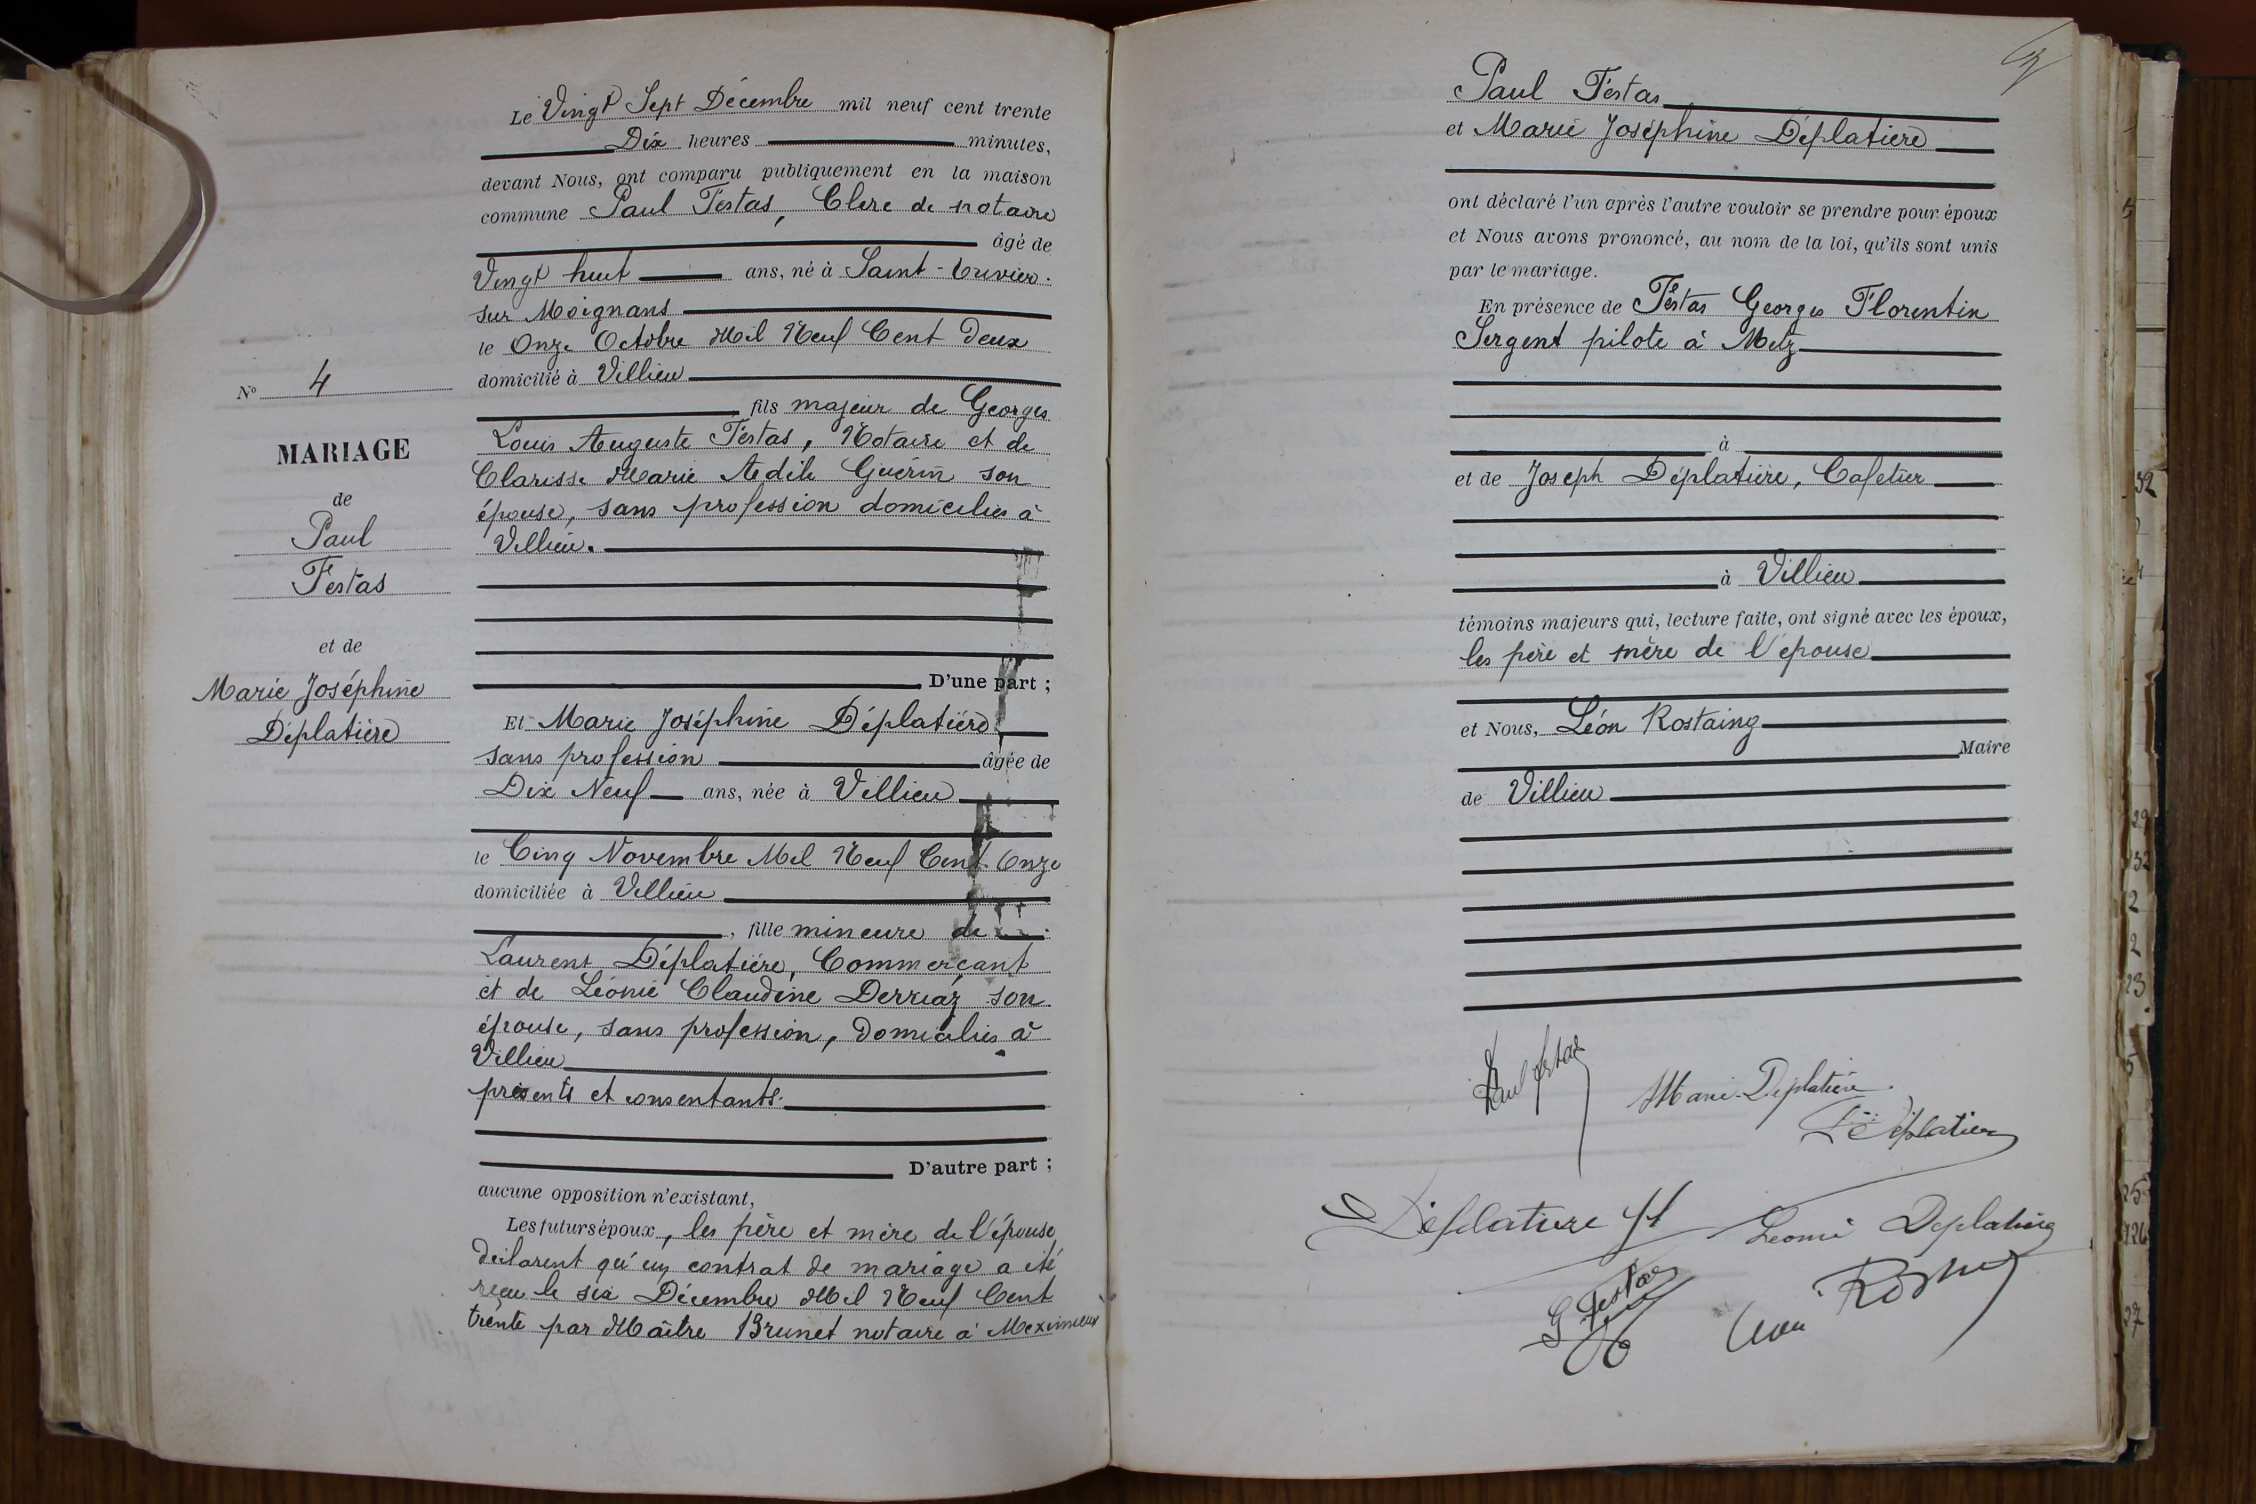 Le Vingt Sept Décembre mil neuf cent trente
Dix heures minutes,
devant Nous, ont comparu publiquement en la maison
commune Paul Festas, Clerc de notaire
âgé de
Vingt huit ans, né à Saint-Trivier
sur Moignans
le Onze Octobre Mil Neuf Cent Deux
domicilié à Villieu
fils majeur de Georges
Louis Auguste Festas, Notaire et de
Clarisse Marie Adèle Guérin son
épouse, sans profession domiciliés à
Villieu.
D'une part ;
Et Marie Joséphine Déplatière
sans profession âgée de
Dix Neuf ans, née à Villieu
le Cinq Novembre Mil Neuf Cent Onze
domiciliée à Villieu
, fille mineure de
Laurent Déplatière, Commerçant
et de Léonie Claudine Derriaz son
épouse, sans profession, domiciliés à
Villieu
présents et consentants.
D'autre part ;
aucune opposition n'existant,
Les futurs époux, les père et mère de l'épouse
déclarent qu'un contrat de mariage a été
reçu le six Décembre Mil Neuf Cent
trente par Maître Brunet notaire à Meximieux
N° 4
MARIAGE
de
Paul
Festas
et de
Marie Joséphine
Déplatière
Paul Festas
et Marie Joséphine Déplatière
ont déclaré l'un après l'autre vouloir se prendre pour époux
et Nous avons prononcé, au nom de la loi, qu'ils sont unis
par le mariage.
En présence de Festas Georges Florentin
Sergent pilote à Metz
à
et de Joseph Déplatière, Cafetier
à Villieu
témoins majeurs qui, lecture faite, ont signé avec les époux,
les père et mère de l'épouse
et Nous, Léon Rostaing
Maire
de Villieu
Paul Festas
Marie Déplatière
Déplatière
Déplature
Léonie Déplatière
G Festas